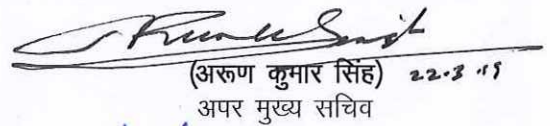 (अरूण कुमार सिंह) 22.3.19
अपर मुख्य सचिव